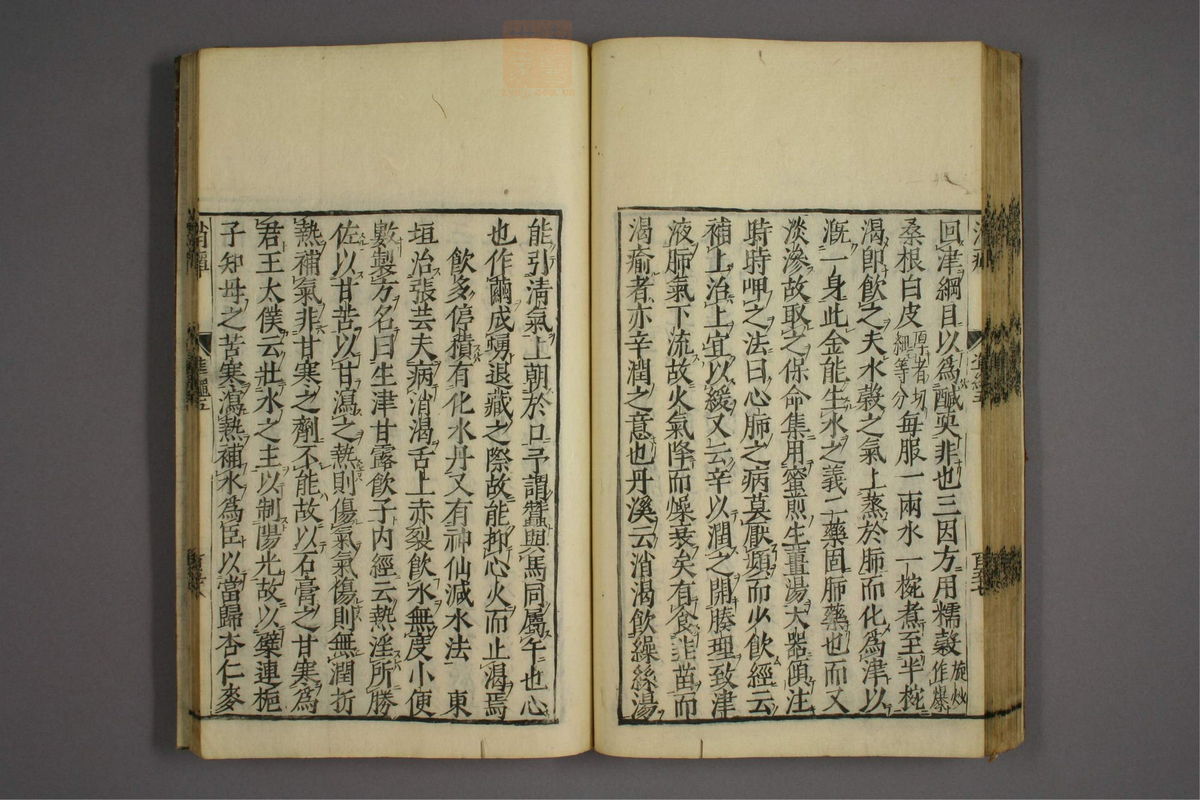 回津綱目以為醎奠非也三因方用糯穀旋炒作爆
桑根白皮厚者切細等分每服一兩水一椀煮至半椀
渴即飲之夫水穀之氣上蒸於肺而化為津以
溉一身此金能生水之義二藥固肺藥也而又
淡滲故取之保命集用蜜煎生薑湯大器傾注
時時呷之法曰心肺之病莫厭頻而少飲經云
補上治上宜以緩又云辛以潤之開腠理致津
液肺氣下流故火氣降而燥衰矣有食韭苗而
渴瘉者亦辛潤之意也丹溪云消渴飲繰絲湯
能引清氣上朝於口予謂蠶與馬同屬午也心
也作繭成蛹退藏之際故能抑心火而止渴焉
飲多停積有化水丹又有神仙減水法 東
垣治張芸夫病消渴舌上赤裂飲水無度小便
數製方名曰生津甘露飲子內經云熱淫所勝
佐以甘苦以甘瀉之熱則傷氣氣傷則無潤折
熱補氣非甘寒之劑不能故以石膏之甘寒為
君王太僕云壯水之主以制陽光故以蘗連梔
子知母之苦寒瀉熱補水為臣以當歸杏仁麥